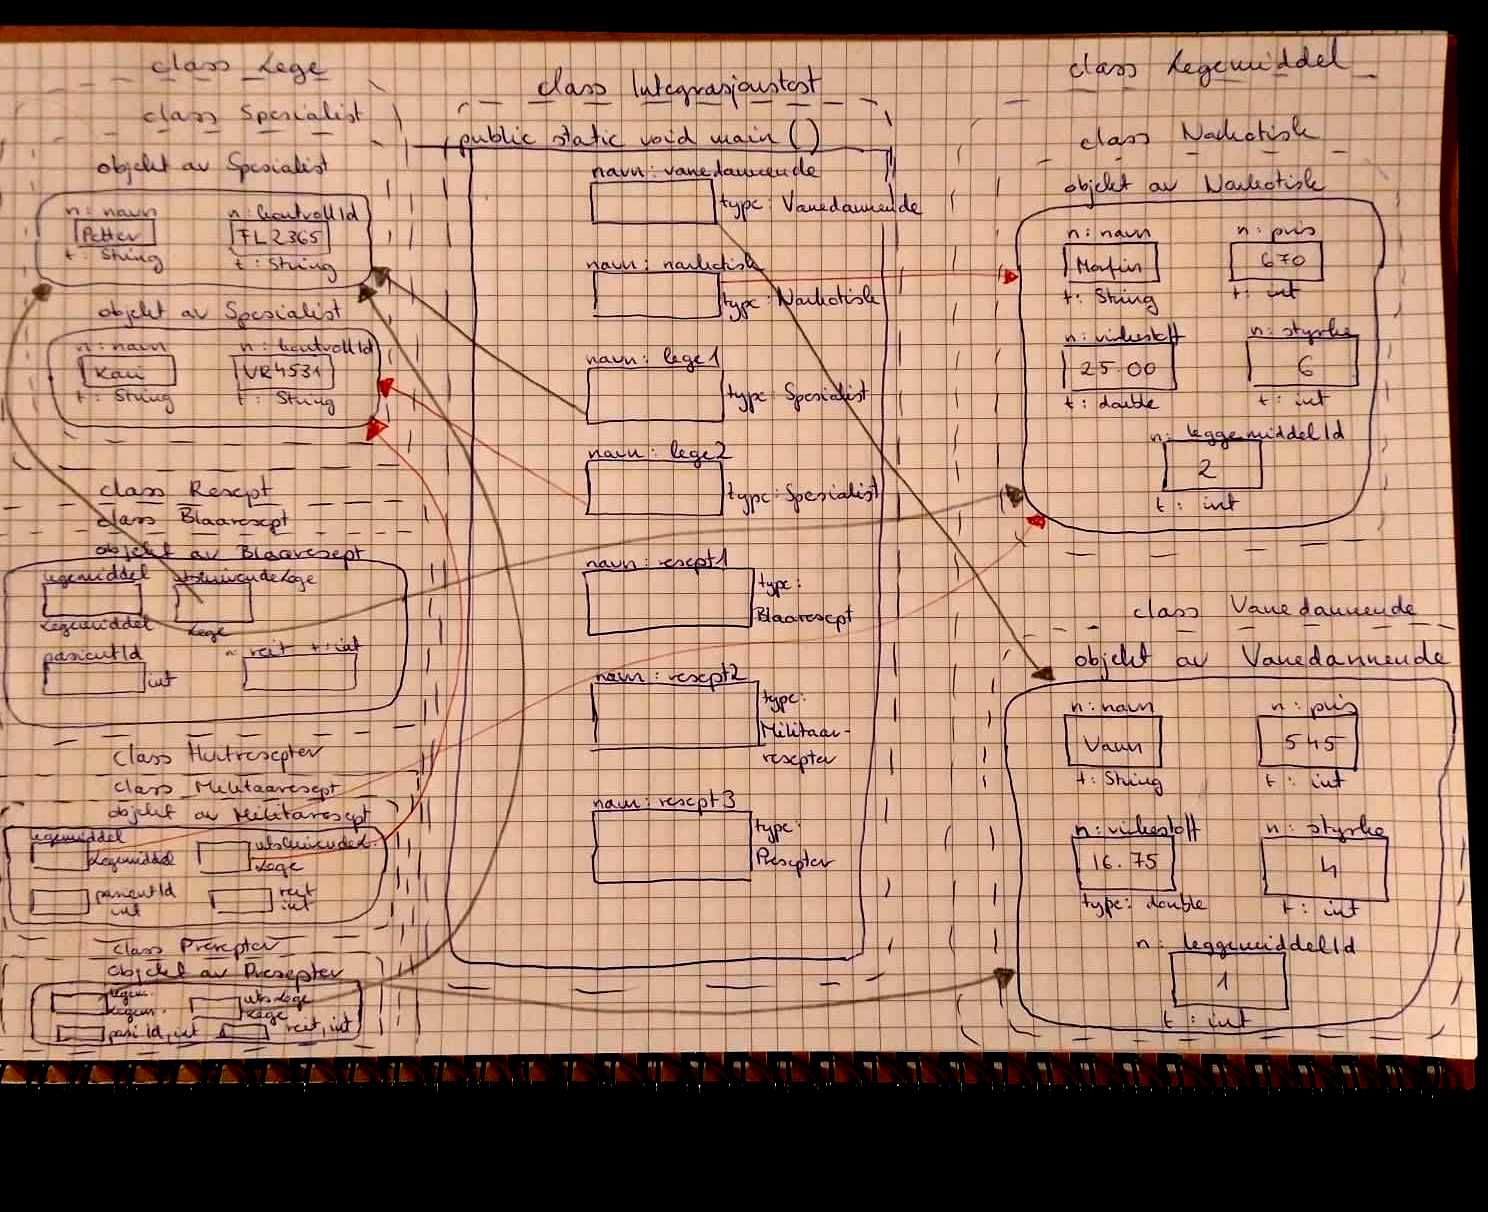 class Lege
class Spesialist
objekt av Spesialist
n: navn
n: kontrollId
Petter
FL2365
t: String
t: String
objekt av Spesialist
n: navn
n: kontrollId
Kari
VR4531
t: String
t: String
class Resept
class Blaaresept
objekt av Blaaresept
legemiddel
utskrivendeLege
Legemiddel
Lege
pasientId
int
reit t: int
class Hvitresepter
class Militaaresept
objekt av Militaresept
legemiddel
Legemiddel
Lege
pasientId
int
reit
int
class Presepter
objekt av Presepter
legem.
Legem.
utsLege
Lege
pasi Id, int
reit, int
class Integrasjonstest
public static void main ()
navn: vanedannende
type: Vanedannende
navn: narkotisk
type: Narkotisk
navn: lege1
type: Spesialist
navn: lege2
type: Spesialist
navn: resept1
type:
Blaaresept
navn: resept2
type:
Militaar-
resepter
navn: resept3
type:
Presepter
class Legemiddel
class Narkotisk
objekt av Narkotisk
n: navn
n: pris
Morfin
670
t: String
t: int
n: virkestoff
n: styrke
25.00
6
t: double
t: int
n: leggemiddelId
2
t: int
class Vanedannende
objekt av Vanedannende
n: navn
n: pris
Vann
545
t: String
t: int
n: virkestoff
n: styrke
16.75
4
type: double
t: int
n: leggemiddelId
1
t: int